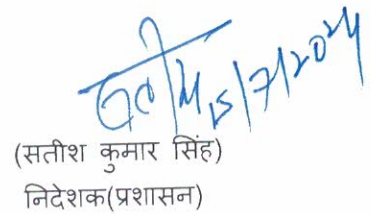 15/7/2024
(सतीश कुमार सिंह)
निदेशक(प्रशासन)